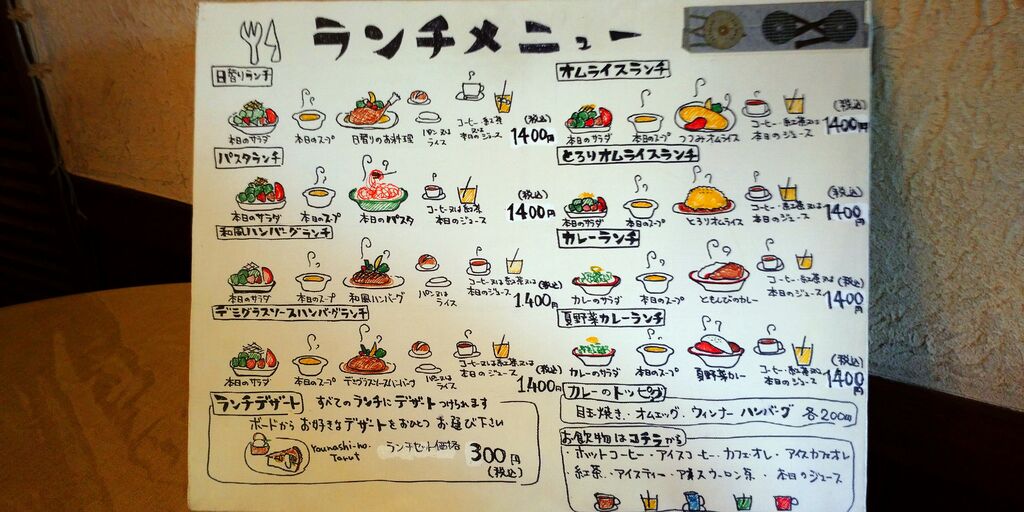 ランチメニュー
日替りランチ
本日のサラダ
本日のスープ
日替りのお料理
パン又は
ライス
コーヒー・紅茶
又は
本日のジュース
(税込)
1400円
パスタランチ
本日のサラダ
本日のスープ
本日のパスタ
コーヒー又は紅茶
本日のジュース
(税込)
1400円
和風ハンバーグランチ
本日のサラダ
本日のスープ
和風ハンバーグ
パン又は
ライス
コーヒー又は紅茶又は
本日のジュース
(税込)
1,400円
デミグラスソースハンバーグランチ
本日のサラダ
本日のスープ
デミグラスソースハンバーグ
パン又は
ライス
コーヒー又は紅茶又は
本日のジュース
(税込)
1,400円
ランチデザート
すべてのランチにデザートつけられます
ボードからお好きなデザートをおひとつお選び下さい
Younashi-no.
Tarut
ランチセット価格
300円
(税込)
オムライスランチ
本日のサラダ
本日のスープ
つつみオムライス
コーヒー・紅茶又は
本日のジュース
(税込)
1400円
とろりオムライスランチ
本日のサラダ
本日のスープ
とろりオムライス
コーヒー・紅茶又は
本日のジュース
(税込)
1400円
カレーランチ
カレーのサラダ
本日のスープ
ともしびのカレー
コーヒー・紅茶又は
本日のジュース
(税込)
1400円
夏野菜カレーランチ
カレーのサラダ
本日のスープ
夏野菜カレー
コーヒー・紅茶又は
本日のジュース
(税込)
1400円
カレーのトッピング
目玉焼き・オムエッグ・ウィンナー ハンバーグ 各200円
お飲物はコチラから
・ホットコーヒー・アイスコーヒー・カフェオレ・アイスカフェオレ
・紅茶・アイスティー・アイスウーロン茶・本日のジュース